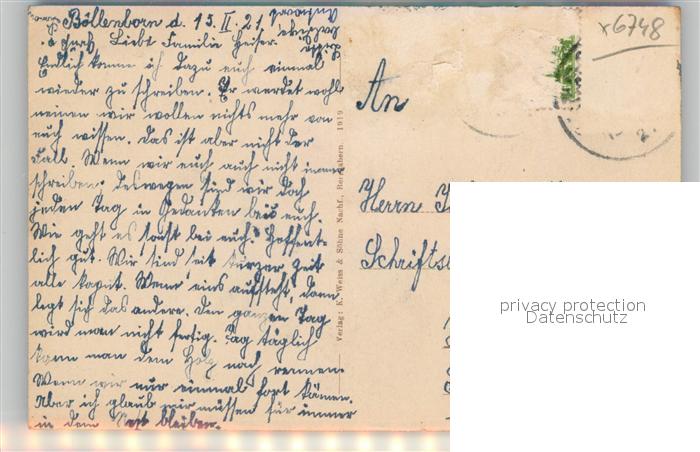 Böllenborn d. 13. II. 21.
Liebe Familie Heiser.
Endlich komme ich dazu euch einmal
wieder zu schreiben. Ihr werdet wohl
meinen wir wollen nichts mehr von
euch wissen. Das ist aber nicht der
Fall. Wenn wir euch auch nicht immer
schreiben, deswegen sind wir doch
jeden Tag in Gedanken bei euch.
Wie geht es sonst bei euch? Hoffent-
lich gut. Wir sind seit kurzer Zeit
alle kaput. Wenn eins aufsteht, dann
legt sich das andere. Den ganzen Tag
wird man nicht fertig. Tag täglich
kann man dem Holz nach rennen.
Wenn wir nur einmal fort kämen.
Aber ich glaub wir müssen für immer
in dem Nest bleiben.
Verlag: K. Weiss & Söhne Nachf., Bergzabern. 1919
x6748
An
Herrn
Schrifts
privacy protection
Datenschutz